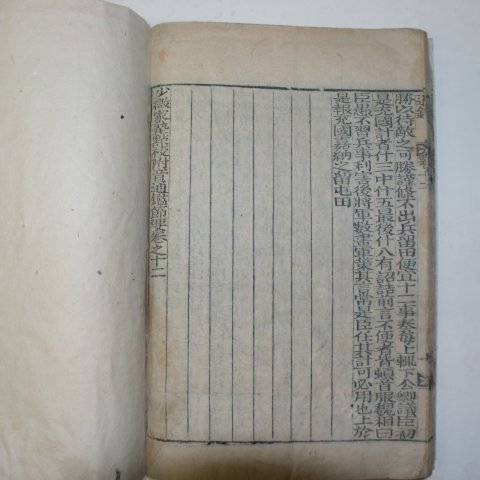 勝以待敵之可勝謹條不出兵留田便宜十二事奏每上輒下公卿議臣初
是充國計者什三中什五最後什八有詔詰前言不便者皆頓首服魏相曰
臣愚不習兵事利害後將軍數畫軍策其言常是臣任其計可必用也上於
是報充國嘉納之留屯田
少微家塾點校附音通鑑節要卷之十二